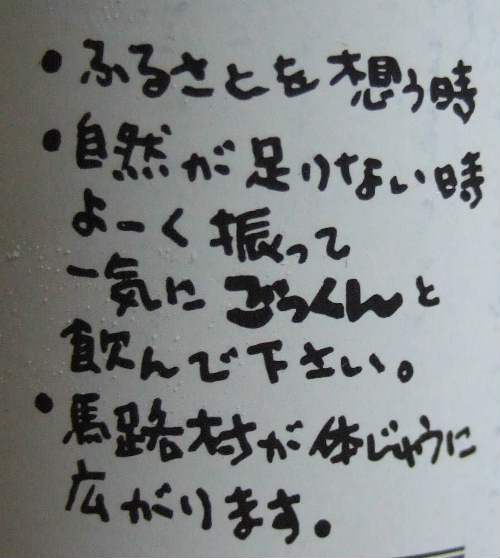 ・ふるさとを想う時
・自然が足りない時
よーく振って
一気にごっくんと
飲んで下さい。
・馬路村が体じゅうに
広がります。